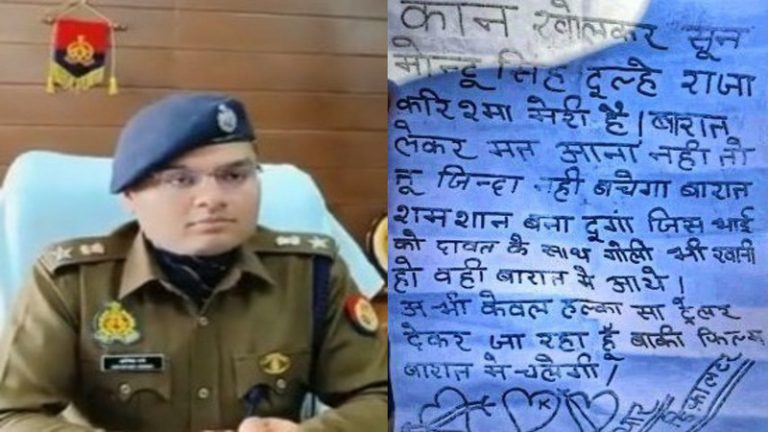 कान खोलकर सून
मोन्टू सिंह दूल्हे राजा
करिश्मा मेरी है। बारात
लेकर मत आना नही तो
तू जिन्दा नही बचेगा बारात
शमशान बना दूगा जिस भाई
को दावत के साथ गोली भी खानी
हो वही बारात मे आये।
अभी केवल हल्का सा ट्रेलर
देकर जा रहा हूँ बाकी फिल्म
बारात मे चलेगी।